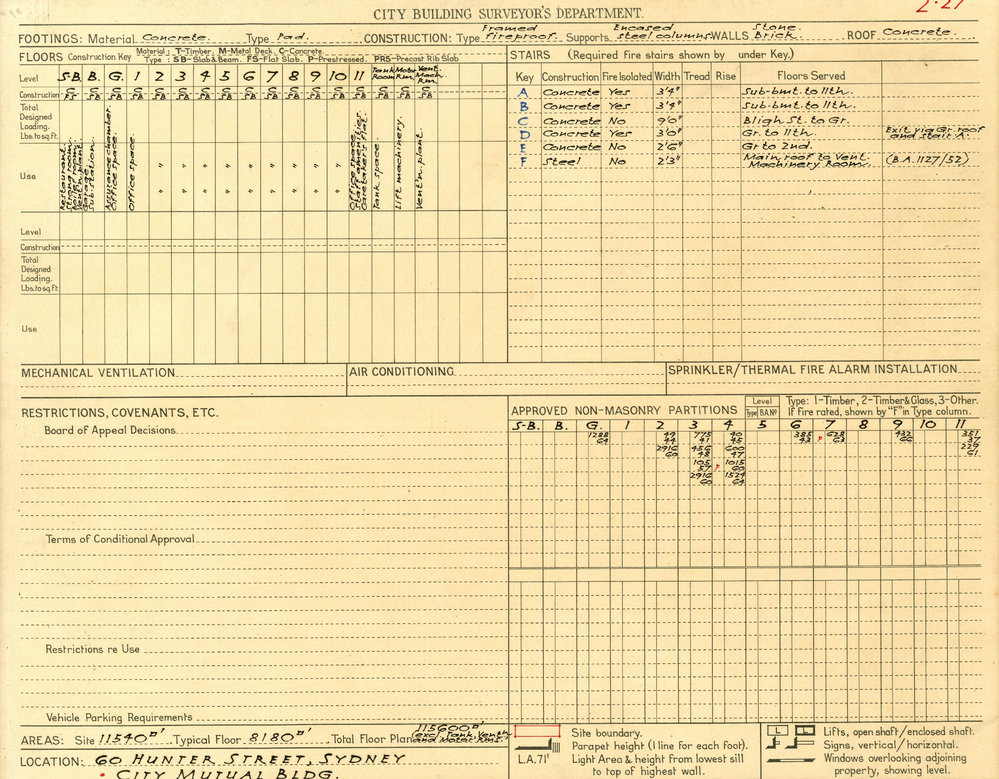 2·27
CITY BUILDING SURVEYOR'S DEPARTMENT.
FOOTINGS: Material Concrete. Type Pad. CONSTRUCTION: Type Framed Fireproof. Supports Encased steel columns WALLS Stone Brick. ROOF Concrete.
FLOORS Construction Key Material: T-Timber, M-Metal Deck, C-Concrete.
Type: SB-Slab & Beam. FS-Flat Slab. P-Prestressed. PRS-Precast Rib Slab
Level S-B. B. G. 1 2 3 4 5 6 7 8 9 10 11 Tank Room Motor Rm. Vent. Mach. Rm.
Construction C FS C SB C SB C SB C SB C SB C SB C SB C SB C SB C SB C SB C SB C SB C SB C SB C SB
Total Designed Loading. Lbs. to sq. ft.
Use
Restaurant. Strong room. Boiler room. Vent'n. plant.
Garage. Sub-station.
Assurance chamber. Office space.
Office space.
" " " " " " " " "
" " " " " " " " "
Office space. Staff amenities. Caretaker's flat.
Tank space.
Lift machinery.
Vent'n. plant.
Level
Construction
Total Designed Loading. Lbs. to sq. ft.
Use
STAIRS (Required Fire stairs shown by under Key.)
Key Construction Fire Isolated Width Tread Rise Floors Served
A Concrete Yes 3'4" Sub-bmt. to 11th.
B Concrete Yes 3'4" Sub-bmt. to 11th.
C Concrete No 9'0" Bligh St. to Gr.
D Concrete Yes 3'0" Gr. to 11th. Exit via Gr. roof and stair A.
E Concrete No 2'6" Gr to 2nd.
F Steel No 2'3" Main roof to Vent. Machinery Room. (B.A. 1127/52)
MECHANICAL VENTILATION
AIR CONDITIONING
SPRINKLER/THERMAL FIRE ALARM INSTALLATION
RESTRICTIONS, COVENANTS, ETC.
Board of Appeal Decisions
Terms of Conditional Approval
Restrictions re Use
Vehicle Parking Requirements
APPROVED NON-MASONRY PARTITIONS Level Type B.A.Nº Type: 1-Timber, 2-Timber & Glass, 3-Other.
If Fire rated, shown by "F" in Type column.
S-B. B. G. 1 2 3 4 5 6 7 8 9 10 11
1288 49 775 40 385 628 432 351
64 44 41 45 43 F 63 66 37
2916 456 600 229
60 48 47 61
105 1015
57 F 60
2916 1524
60 64
AREAS: Site 11540□' Typical Floor 8180□' Total Floor Plan 115600□' (exc. Tank, Vent'n and Motor Rms.
LOCATION: 60 HUNTER STREET, SYDNEY
• CITY MUTUAL BLDG.
Site boundary.
Parapet height (1 line for each foot).
L.A.71' Light Area & height from lowest sill
to top of highest wall.
L L Lifts, open shaft/enclosed shaft.
Signs, vertical/horizontal.
Windows overlooking adjoining
property, showing level.